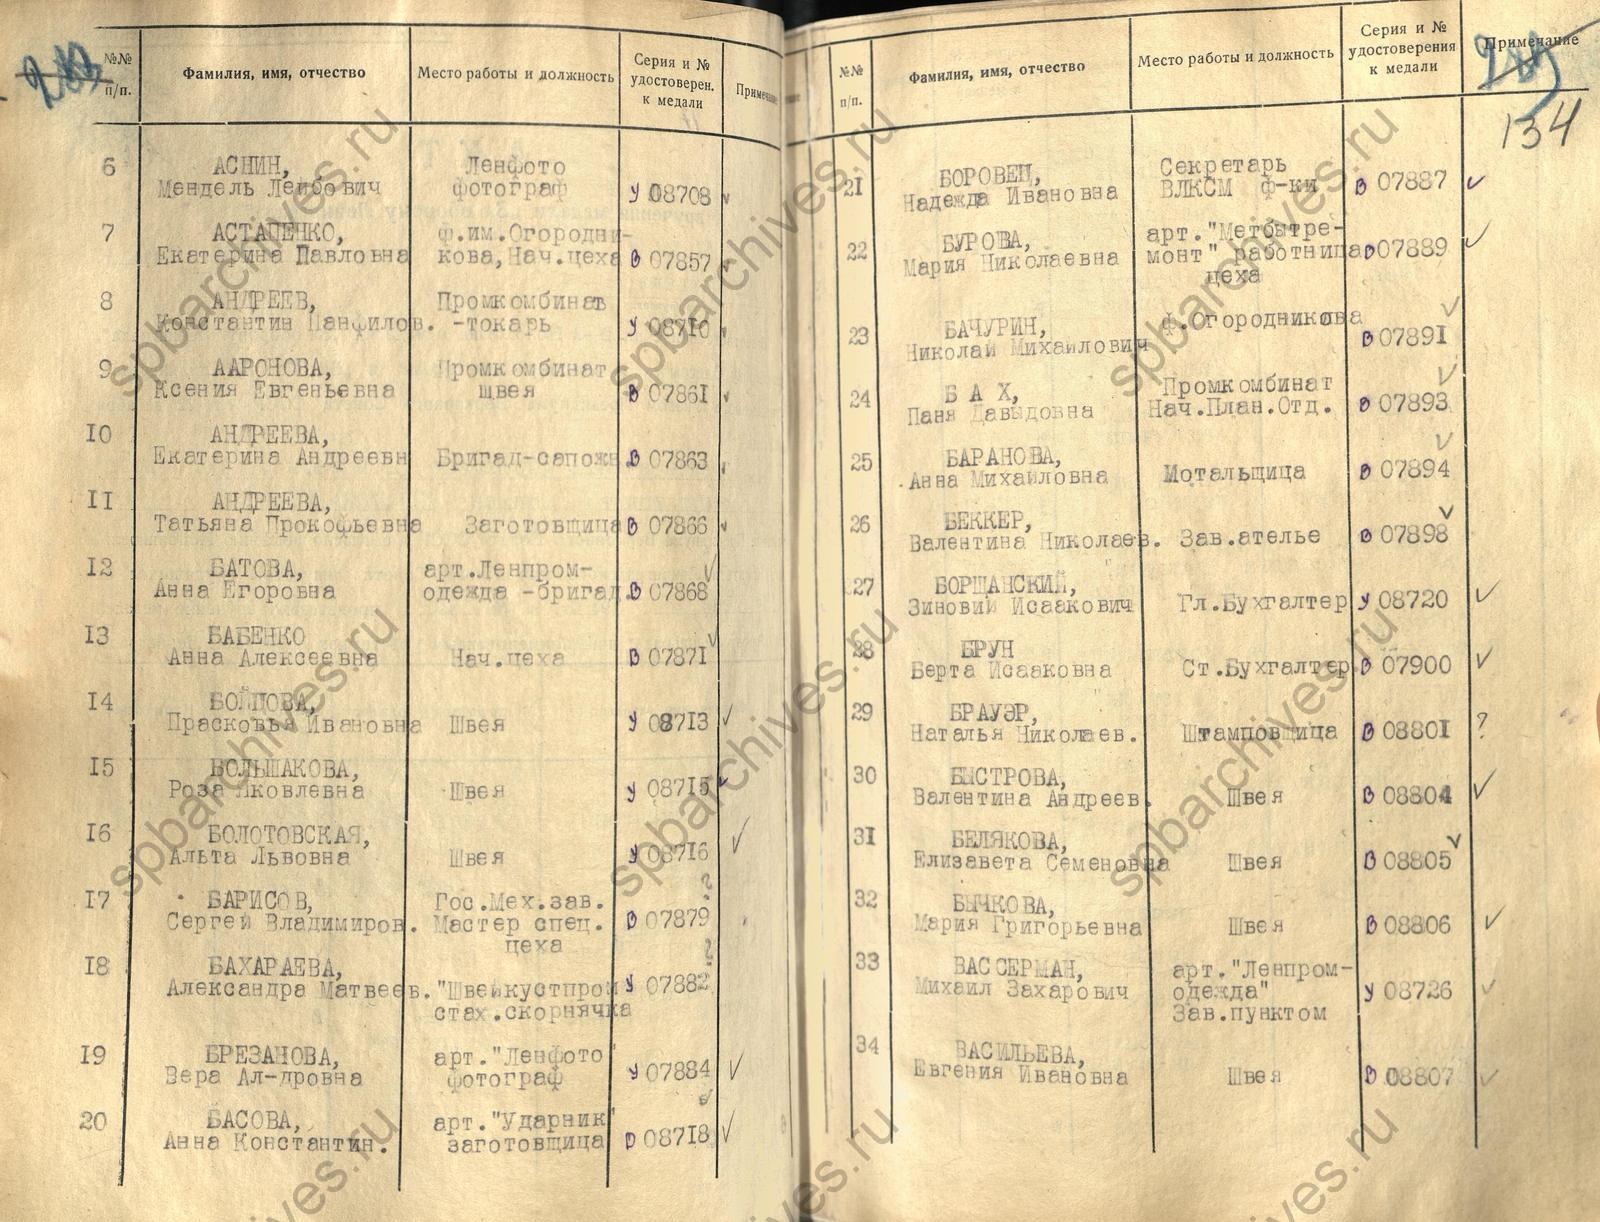 №№ п/п.
Фамилия, имя, отчество
Место работы и должность
Серия и №
удостоверен.
к медали
6 АСНИН, Ленфото
Мендель Лейбович фотограф У 08708
7 АСТАПЕНКО, ф.им.Огородни-
Екатерина Павловна кова,Нач.цеха В 07857
8 АНДРЕЕВ, Промкомбинат
Константин Панфилов. -токарь У 08710
9 ААРОНОВА, Промкомбинат
Ксения Евгеньевна швея В 07861
10 АНДРЕЕВА,
Екатерина Андреевн Бригад-сапожн В 07863
11 АНДРЕЕВА,
Татьяна Прокофьевна Заготовщица В 07866
12 БАТОВА, арт.Ленпром-
Анна Егоровна одежда -бригад. В 07868
13 БАБЕНКО
Анна Алексеевна Нач.цеха В 07871
14 БОЙЦОВА,
Прасковья Ивановна Швея У 08713
15 БОЛЬШАКОВА,
Роза Яковлевна Швея У 08715
16 БОЛОТОВСКАЯ,
Альта Львовна Швея У 08716
17 БАРИСОВ, Гос.Мех.зав.
Сергей Владимиров. Мастер спец. В 07879
цеха
18 БАХАРАЕВА,
Александра Матвеев. "Швейкустпром У 07882
стах.скорнячка
19 БРЕЗАНОВА, арт."Ленфото"
Вера Ал-дровна фотограф У 07884
20 БАСОВА, арт."Ударник"
Анна Константин. заготовщица 08718
№№ п/п.
Фамилия, имя, отчество
Место работы и должность
Серия и №
удостоверения
к медали
Примечание
134
21 БОРОВЕЦ, Секретарь
Надежда Ивановна ВЛКСМ ф-ки В 07887
22 БУРОВА, арт."Метбытре-
Мария Николаевна монт" работница В 07889
цеха
23 БАЧУРИН, ф.Огородникова
Николай Михайлович В 07891
24 Б А Х, Промкомбинат
Паня Давыдовна Нач.План.Отд. В 07893
25 БАРАНОВА,
Анна Михайловна Мотальщица В 07894
26 БЕККЕР,
Валентина Николаев. Зав.ателье В 07898
27 БОРЩАНСКИЙ,
Зиновий Исаакович Гл.Бухгалтер У 08720
28 БРУН
Берта Исааковна Ст.Бухгалтер В 07900
29 БРАУЭР,
Наталья Николаев. Штамповщица В 08801 ?
30 БЫСТРОВА,
Валентина Андреев. Швея В 08804
31 БЕЛЯКОВА,
Елизавета Семеновна Швея В 08805
32 БЫЧКОВА,
Мария Григорьевна Швея В 08806
33 ВАССЕРМАН, арт."Ленпром-
Михаил Захарович одежда" У 08726
Зав.пунктом
34 ВАСИЛЬЕВА,
Евгения Ивановна Швея В 08807
spbarchives.ru